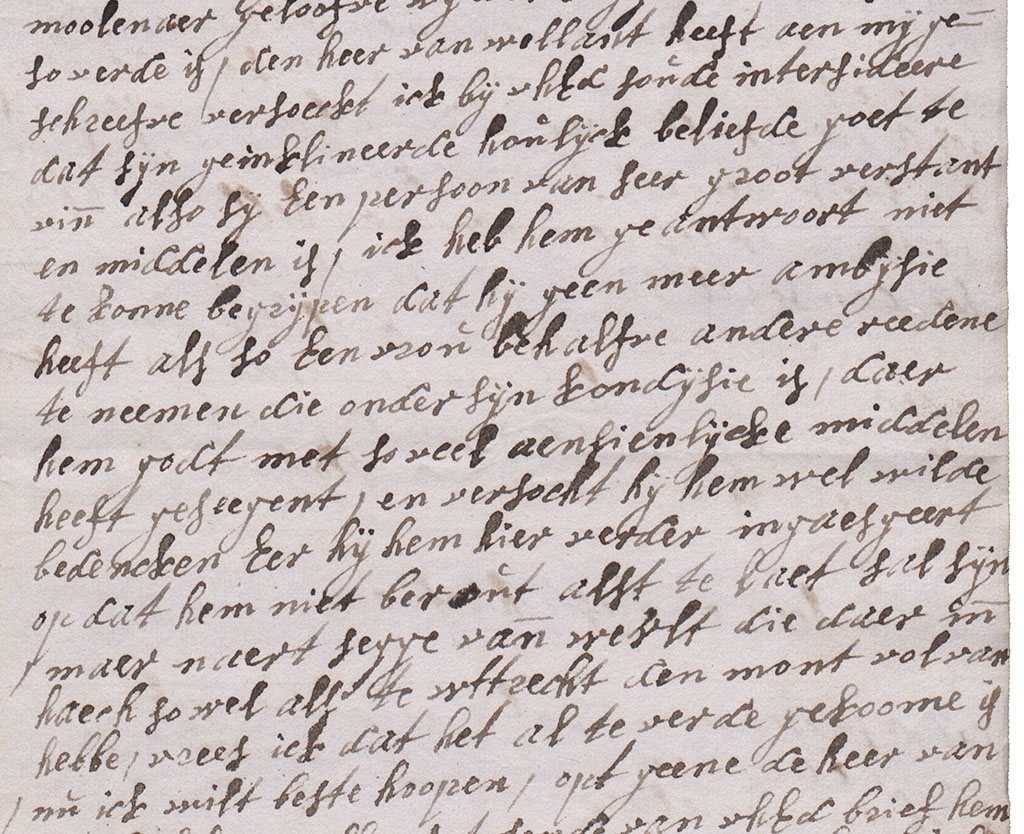 moolenaer geloofve
so verde is, den heer van wellant heeft aen my ge=
schreefve versoeckt ick by uhEd soude intersideere
dat syn geinklineerde houlyck beliefde goet te
vinn also sy Een persoon van seer groot verstant
en middelen is, ick heb hem geantwoort niet
te konne begrypen dat hy geen meer ambysie
heeft als so Een vrou behalfve andere reedene
te neemen die onder syn kondysie is, daer
hem godt met so veel aensienlycke middelen
heeft geseegent, en versocht hy hem wel wilde
bedencken Eer hy hem hier verder ingaesgeert
op dat hem niet berout alst te laet sal syn
, maer naert segge vann werlt die daer inn
haech so wel als te uttrecht den mont vol van
hebbe, vrees ick dat het al te verde gekoome is
, nu ick wilt beste hoopen, opt geene de heer van
van uhEd brief hem